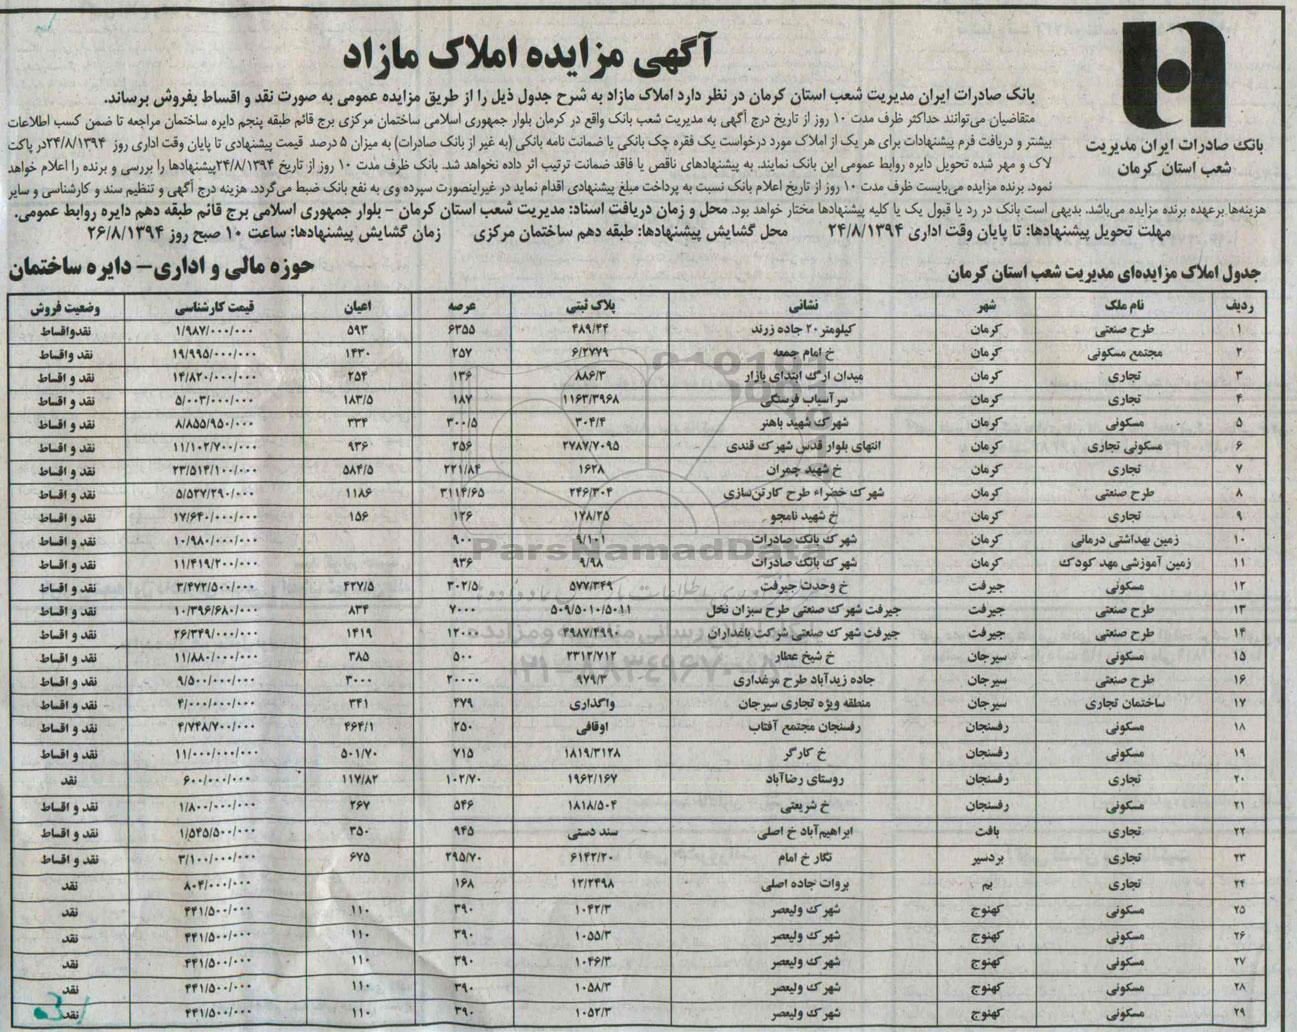 آگهی مزایده املاک مازاد
بانک صادرات ایران مدیریت شعب استان کرمان
بانک صادرات ایران مدیریت شعب استان کرمان در نظر دارد املاک مازاد به شرح جدول ذیل را از طریق مزایده عمومی به صورت نقد و اقساط بفروش برساند.
متقاضیان می‌توانند حداکثر ظرف مدت ۱۰ روز از تاریخ درج آگهی به مدیریت شعب بانک واقع در کرمان بلوار جمهوری اسلامی ساختمان مرکزی برج قائم طبقه پنجم دایره ساختمان مراجعه تا ضمن کسب اطلاعات
بیشتر و دریافت فرم پیشنهادات برای هر یک از املاک مورد درخواست یک فقره چک بانکی یا ضمانت نامه بانکی (به غیر از بانک صادرات) به میزان ۵ درصد قیمت پیشنهادی تا پایان وقت اداری روز ۲۴/۸/۱۳۹۴در پاکت
لاک و مهر شده تحویل دایره روابط عمومی این بانک نمایند. به پیشنهادهای ناقص یا فاقد ضمانت ترتیب اثر داده نخواهد شد. بانک ظرف مدت ۱۰ روز از تاریخ ۲۴/۸/۱۳۹۴پیشنهادها را بررسی و برنده را اعلام خواهد
نمود. برنده مزایده می‌بایست ظرف مدت ۱۰ روز از تاریخ اعلام بانک نسبت به پرداخت مبلغ پیشنهادی اقدام نماید در غیراینصورت سپرده وی به نفع بانک ضبط می‌گردد. هزینه درج آگهی و تنظیم سند و کارشناسی و سایر
هزینه‌ها برعهده برنده مزایده می‌باشد. بدیهی است بانک در رد یا قبول یک یا کلیه پیشنهادها مختار خواهد بود. محل و زمان دریافت اسناد: مدیریت شعب استان کرمان - بلوار جمهوری اسلامی برج قائم طبقه دهم دایره روابط عمومی.
مهلت تحویل پیشنهادها: تا پایان وقت اداری ۲۴/۸/۱۳۹۴ محل گشایش پیشنهادها: طبقه دهم ساختمان مرکزی زمان گشایش پیشنهادها: ساعت ۱۰ صبح روز ۲۶/۸/۱۳۹۴
جدول املاک مزایده‌ای مدیریت شعب استان کرمان حوزه مالی و اداری- دایره ساختمان
ردیف نام ملک شهر نشانی پلاک ثبتی عرصه اعیان قیمت کارشناسی وضعیت فروش
۱ طرح صنعتی کرمان کیلومتر۲۰ جاده زرند ۴۸۹/۴۴ ۶۳۵۵ ۵۹۳ ۱/۹۸۷/۰۰۰/۰۰۰ نقدواقساط
۲ مجتمع مسکونی کرمان خ امام جمعه ۶/۲۷۷۹ ۲۵۷ ۱۴۳۰ ۱۹/۹۹۵/۰۰۰/۰۰۰ نقد واقساط
۳ تجاری کرمان میدان ارگ ابتدای بازار ۸۸۶/۳ ۱۳۶ ۲۵۴ ۱۴/۸۲۰/۰۰۰/۰۰۰ نقد و اقساط
۴ تجاری کرمان سرآسیاب فرسنگی ۱۱۶۳/۳۹۶۸ ۱۸۷ ۱۸۳/۵ ۵/۰۰۳/۰۰۰/۰۰۰ نقد و اقساط
۵ مسکونی کرمان شهرک شهید باهنر ۳۰۴/۴ ۳۰۰/۵ ۳۳۴ ۸/۸۵۵/۹۵۰/۰۰۰ نقد و اقساط
۶ مسکونی تجاری کرمان انتهای بلوار قدس شهرک قندی ۲۷۸۷/۷۰۹۵ ۲۵۶ ۹۳۶ ۱۱/۱۰۲/۷۰۰/۰۰۰ نقد و اقساط
۷ تجاری کرمان خ شهید چمران ۱۶۲۸ ۲۲۱/۸۴ ۵۸۴/۵ ۲۳/۵۱۴/۱۰۰/۰۰۰ نقد و اقساط
۸ طرح صنعتی کرمان شهرک خضراء طرح کارتن‌سازی ۲۴۶/۳۰۴ ۳۱۱۴/۶۵ ۱۱۸۶ ۵/۵۲۷/۲۹۰/۰۰۰ نقد و اقساط
۹ تجاری کرمان خ شهید نامجو ۱۷۸/۲۵ ۱۲۶ ۱۵۶ ۱۷/۶۴۰/۰۰۰/۰۰۰ نقد و اقساط
۱۰ زمین بهداشتی درمانی کرمان شهرک بانک صادرات ۹/۱۰۱ ۹۰۰ ۱۰/۹۸۰/۰۰۰/۰۰۰ نقد و اقساط
۱۱ زمین آموزشی مهد کودک کرمان شهرک بانک صادرات ۹/۹۸ ۹۳۶ ۱۱/۴۱۹/۲۰۰/۰۰۰ نقد و اقساط
۱۲ مسکونی جیرفت خ وحدت جیرفت ۵۷۷/۳۴۹ ۳۰۲/۵ ۴۲۷/۵ ۳/۴۷۲/۵۰۰/۰۰۰ نقد و اقساط
۱۳ طرح صنعتی جیرفت جیرفت شهرک صنعتی طرح سبزان نخل ۵۰۹/۵۰۱۰/۵۰۱۱ ۷۰۰۰ ۸۳۴ ۱۰/۳۹۶/۶۸۰/۰۰۰ نقد و اقساط
۱۴ طرح صنعتی جیرفت جیرفت شهرک صنعتی شرکت باغداران ۴۹۸۷/۴۹۹۰ ۱۲۰۰۰ ۱۴۱۹ ۲۶/۳۴۹/۰۰۰/۰۰۰ نقد و اقساط
۱۵ مسکونی سیرجان خ شیخ عطار ۲۳۱۲/۷۱۲ ۵۰۰ ۳۸۵ ۱۱/۸۸۰/۰۰۰/۰۰۰ نقد و اقساط
۱۶ طرح صنعتی سیرجان جاده زیدآباد طرح مرغداری ۹۷۹/۳ ۲۰۰۰۰ ۳۰۰۰ ۹/۵۰۰/۰۰۰/۰۰۰ نقد و اقساط
۱۷ ساختمان تجاری سیرجان منطقه ویژه تجاری سیرجان واگذاری ۴۷۹ ۳۴۱ ۴/۰۰۰/۰۰۰/۰۰۰ نقد و اقساط
۱۸ مسکونی رفسنجان رفسنجان مجتمع آفتاب اوقافی ۲۵۰ ۴۶۴/۱ ۴/۷۴۸/۷۰۰/۰۰۰ نقد و اقساط
۱۹ مسکونی رفسنجان خ کارگر ۱۸۱۹/۳۱۲۸ ۷۱۵ ۵۰۱/۷۰ ۱۱/۰۰۰/۰۰۰/۰۰۰ نقد و اقساط
۲۰ تجاری رفسنجان روستای رضاآباد ۱۹۶۲/۱۶۷ ۱۰۲/۷۰ ۱۱۷/۸۲ ۶۰۰/۰۰۰/۰۰۰ نقد
۲۱ مسکونی رفسنجان خ شریعتی ۱۸۱۸/۵۰۴ ۵۴۶ ۲۶۷ ۱/۸۰۰/۰۰۰/۰۰۰ نقد و اقساط
۲۲ تجاری بافت ابراهیم‌آباد خ اصلی سند دستی ۹۴۵ ۳۵۰ ۱/۵۴۵/۵۰۰/۰۰۰ نقد و اقساط
۲۳ تجاری بردسیر نگار خ امام ۶۱۴۲/۲۰ ۲۹۵/۷۰ ۶۷۵ ۳/۱۰۰/۰۰۰/۰۰۰ نقد و اقساط
۲۴ تجاری بم بروات جاده اصلی ۱۲/۲۴۹۸ ۱۶۸ ۸۰۴/۰۰۰/۰۰۰ نقد
۲۵ مسکونی کهنوج شهرک ولیعصر ۱۰۴۲/۳ ۳۹۰ ۱۱۰ ۴۴۱/۵۰۰/۰۰۰ نقد
۲۶ مسکونی کهنوج شهرک ولیعصر ۱۰۵۵/۳ ۳۹۰ ۱۱۰ ۴۴۱/۵۰۰/۰۰۰ نقد
۲۷ مسکونی کهنوج شهرک ولیعصر ۱۰۴۶/۳ ۳۹۰ ۱۱۰ ۴۴۱/۵۰۰/۰۰۰ نقد
۲۸ مسکونی کهنوج شهرک ولیعصر ۱۰۵۸/۳ ۳۹۰ ۱۱۰ ۴۴۱/۵۰۰/۰۰۰ نقد
۲۹ مسکونی کهنوج شهرک ولیعصر ۱۰۵۲/۳ ۳۹۰ ۱۱۰ ۴۴۱/۵۰۰/۰۰۰ نقد
ParsNamadData